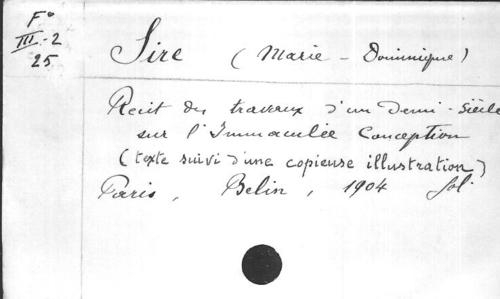 Fº
III-2
25
Sire (Marie-Dominique)
Récit des travaux d'un Demi-Siècle
sur l'Immaculée Conception
(texte suivi d'une copieuse illustration)
Paris, Belin, 1904 fol.